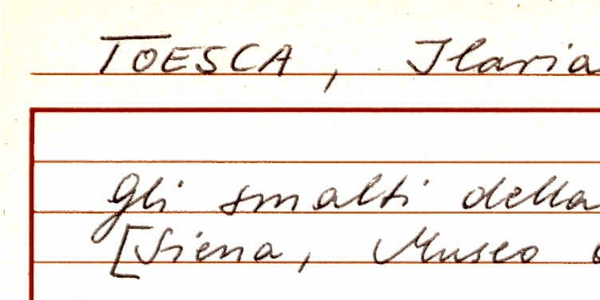 TOESCA, Ilaria
Gli smalti della
[Siena, Museo